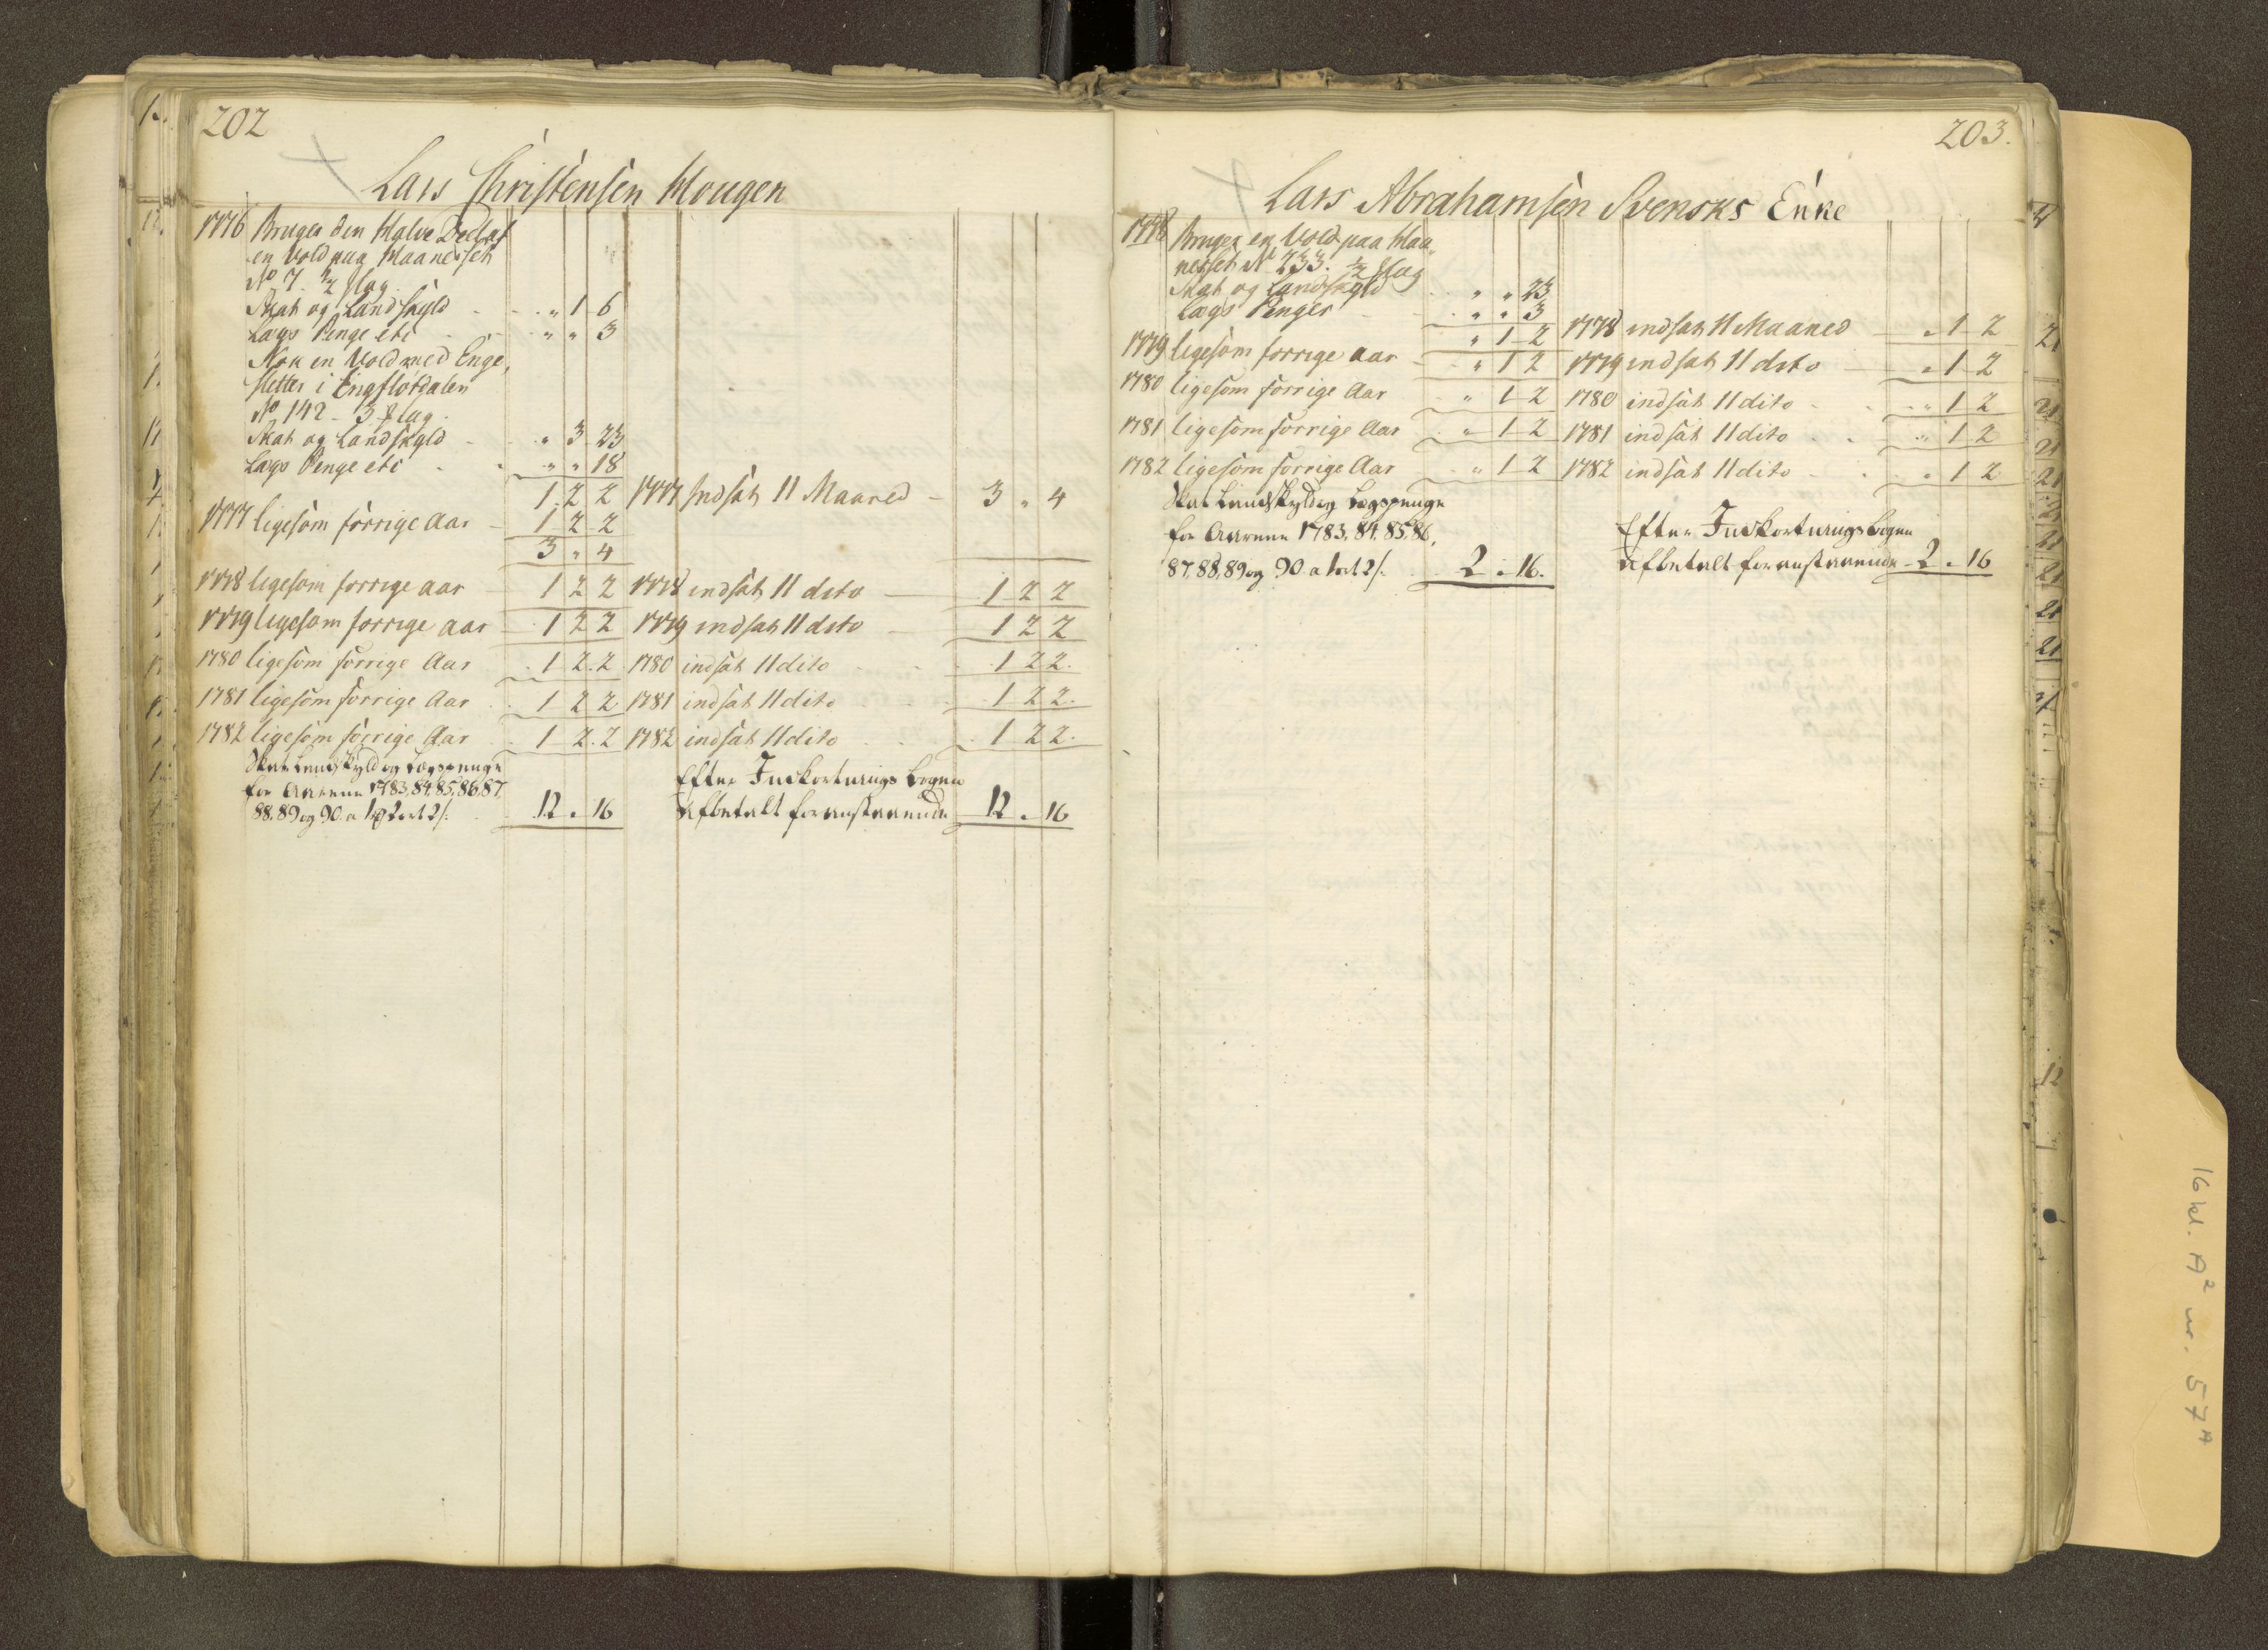 202
Lars Christensen Hougen
1776 Bruger den Halve Deel af
en Vold paa Haanesset
No 7. ½ Slag
Skat og Landskyld - - " 1 6
Lægs Penge etc - - " " 3
Nok en Vold med Enge,
sletter i Engflotdalen
No 142 - 3 Slag.
Skat og Landskyld - - " 3 23
Lægs Penge etc - - " " 18
1. 2 2
1777 Indsat 11 Maaned - 3 " 4
1777 ligesom forrige Aar - 1 2 2
3 " 4
1778 ligesom forrige aar - 1 2 2 1778 indsat 11 dito - 1 2 2
1779 ligesom forrige aar - 1 2 2 1779 indsat 11 dito - 1 2 2
1780 ligesom forrige Aar . 1 2. 2 1780 indsat 11 dito . . 1 2 2.
1781 ligesom forrige Aar . 1 2 2 1781 indsat 11 dito . 1 2 2.
1782 ligesom forrige Aar . 1 2. 2 1782 indsat 11 dito . . 1 2 2.
Skat Landskyld og Lægspenge
for Aarene 1783, 84, 85, 86, 87,
88, 89 og 90. a 1 rd 2 ort 2 s. 12 " 16
Efter Indkortnings bogen
afbetalt foranstaaende 12 " 16
203.
Lars Abrahamsen Svensks Enke
1778 Bruger en Vold paa Haa
nesset No 233. ½ Slag
Skat og Landskyld - " " 23
Lægs Penger - " " 3
" 1 2 1778 indsat 11 Maaned - " 1 2
1779 ligesom forrige aar - " 1 2 1779 indsat 11 dito - " 1 2
1780 ligesom forrige Aar . " 1 2 1780 indsat 11 dito . . " 1 2
1781 ligesom forrige Aar . " 1 2 1781 indsat 11 dito . . " 1 2
1782 ligesom forrige Aar . " 1 2 1782 indsat 11 dito . . " 1 2
Skat Landskyld og Lægspenge
for Aarene 1783, 84, 85, 86,
87, 88, 89 og 90. a 1 ort 2 s. 2 " 16.
Efter Indkortnings bogen
afbetalt foranstaaende 2 " 16
16 kl. A² nr. 57A